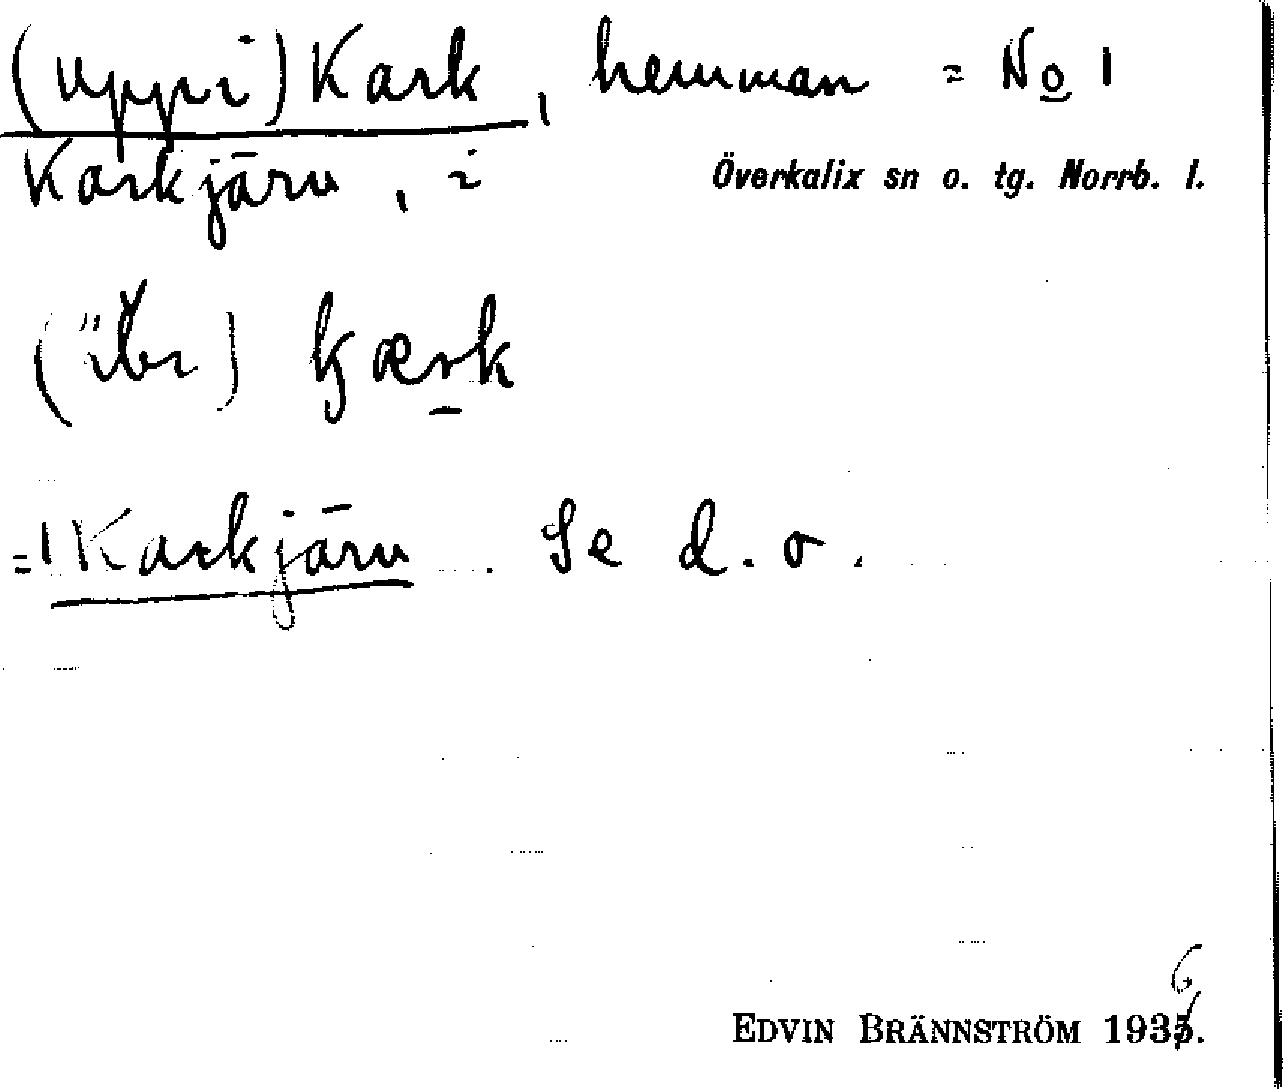 (uppi) Kark, hemman = No 1
Karkjärv, i
Överkalix sn o. tg. Norrb. l.
kærk
= Karkjärv. Se d. o.
EDVIN BRÄNNSTRÖM 1936.